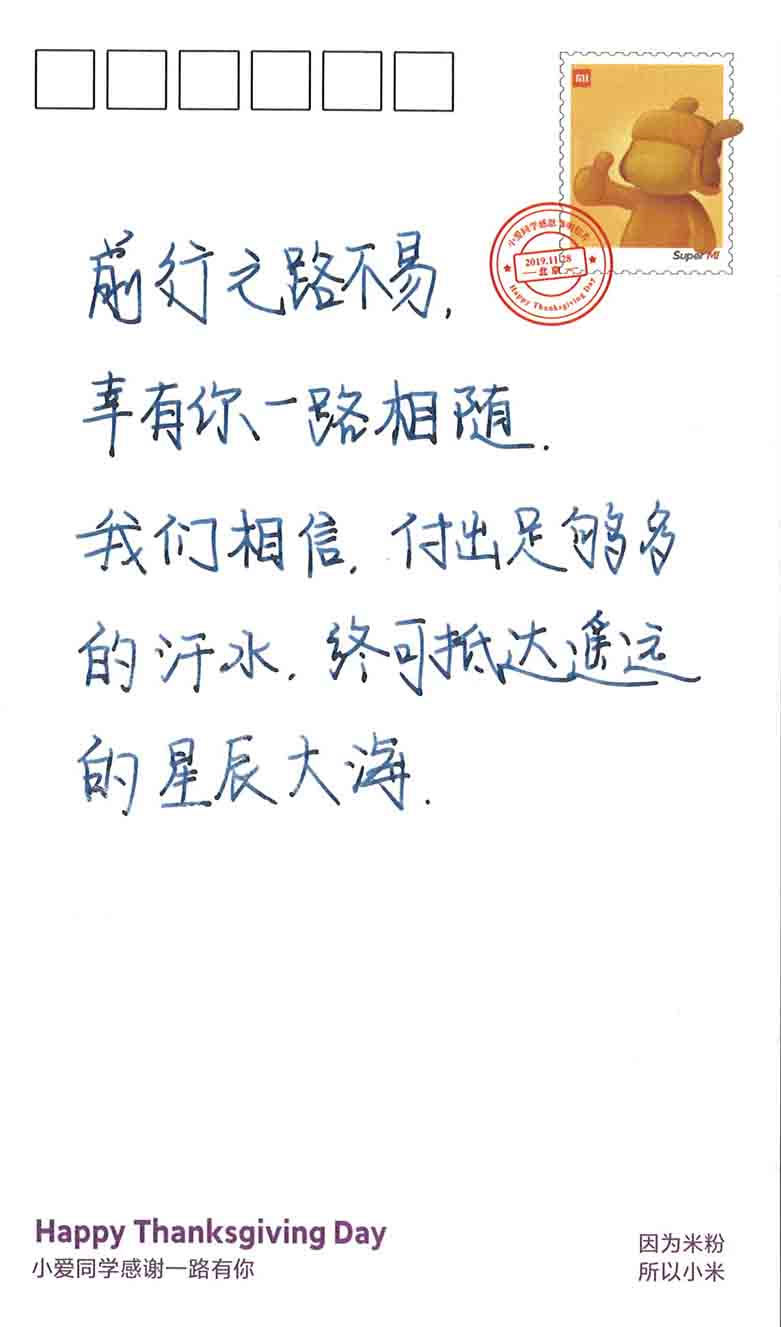 MI
Super MI
小爱同学感恩节明信片
2019.11.28
北京
Happy Thanksgiving Day
前行之路不易，
幸有你一路相随.
我们相信, 付出足够多
的汗水, 终可抵达遥远
的星辰大海.
Happy Thanksgiving Day
小爱同学感谢一路有你
因为米粉
所以小米